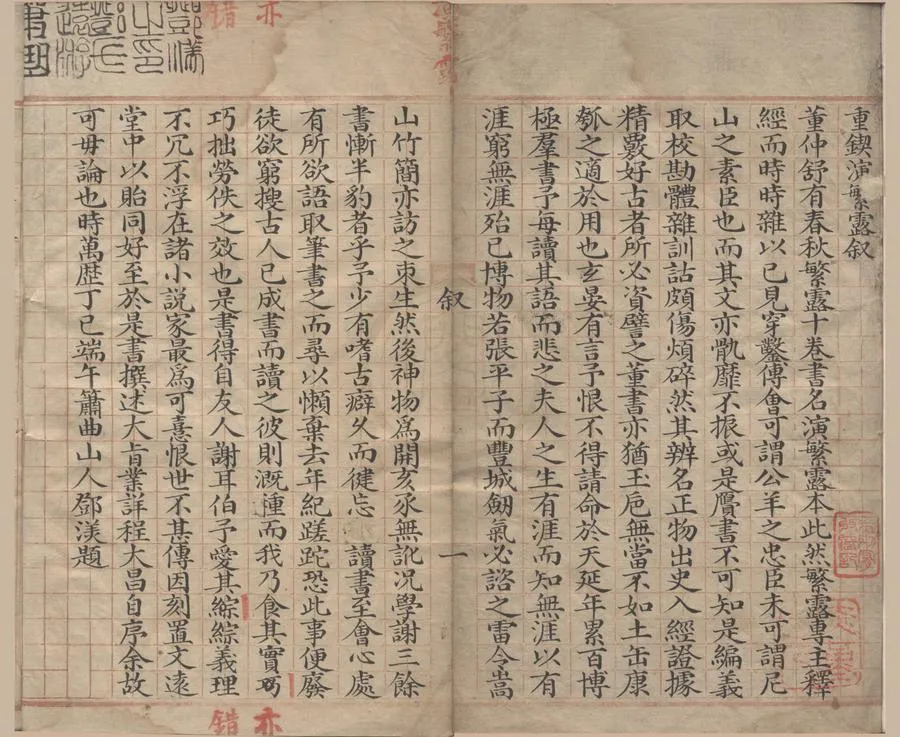 重鍥演繁露叙
董仲舒有春秋繁露十卷書名演繁露本此然繁露專主釋
經而時時雜以已見穿鑿傅會可謂公羊之忠臣未可謂尼
山之素臣也而其文亦骫靡不振或是贋書不可知是編義
取校勘體雜訓詁頗傷煩碎然其辨名正物出史入經證據
精覈好古者所必資譬之董書亦猶玉巵無當不如土缶康
瓠之適於用也玄晏有言予恨不得請命於天延年累百博
極羣書予每讀其語而悲之夫人之生有涯而知無涯以有
涯窮無涯殆已博物若張平子而豐城劒氣必諮之雷令嵩
叙
一
山竹簡亦訪之束生然後神物爲開亥豕無訛况學謝三餘
書慚半豹者乎予少有嗜古癖久而健忘 讀書至會心處
有所欲語取筆書之而尋以懶棄去年紀蹉跎恐此事便廢
徒欲窮搜古人已成書而讀之彼則溉種而我乃食其實
巧拙勞佚之效也是書得自友人謝耳伯予愛其綜綜義理
不冗不浮在諸小説家最爲可憙恨世不甚傳因刻置文遠
堂中以貽同好至於是書撰述大肯業詳程大昌自序余故
可毋論也時萬歴丁巳端午簫曲山人鄧渼題
亦錯
亦錯
鄧渼之印